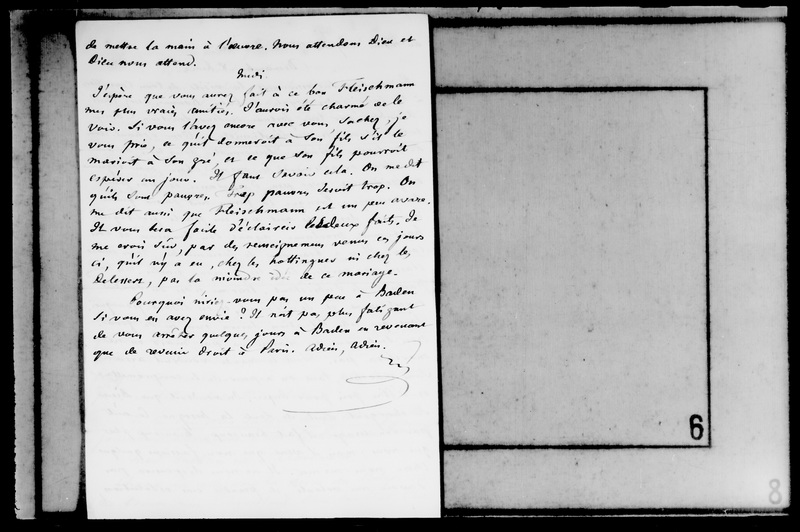 de mettre la main à l'œuvre. Nous attendons Dieu et
Dieu nous attend.
Midi
J'espère que vous aurez fait à ce bon Fleischmann
mes plus vraies amitiés. J'aurois été charmé de le
voir. Si vous l'avez encore avec vous, sachez, je
vous prie, ce qu'il donneroit à son fils s'il le
marioit à son gré, et ce que son fils pourroit
espérer un jour. Il faut savoir cela. On me dit
qu'ils sont pauvres. Trop pauvres seroit trop. On
me dit aussi que Fleischmann est un peu avare.
Il vous sera facile d'éclaircir les deux faits. Je
me crois sûr, par des renseignemens venus ces jours
ci, qu'il n'y a eu, chez les Hottinguer ni chez les
Delessert, pas la moindre idée de ce mariage.
Pourquoi n'iriez-vous pas un peu à Baden
si vous en avez envie ? Il n'est pas plus fatigant
de vous arrêter quelques jours à Baden en revenant
que de revenir droit à Paris. Adieu, Adieu.
6
8